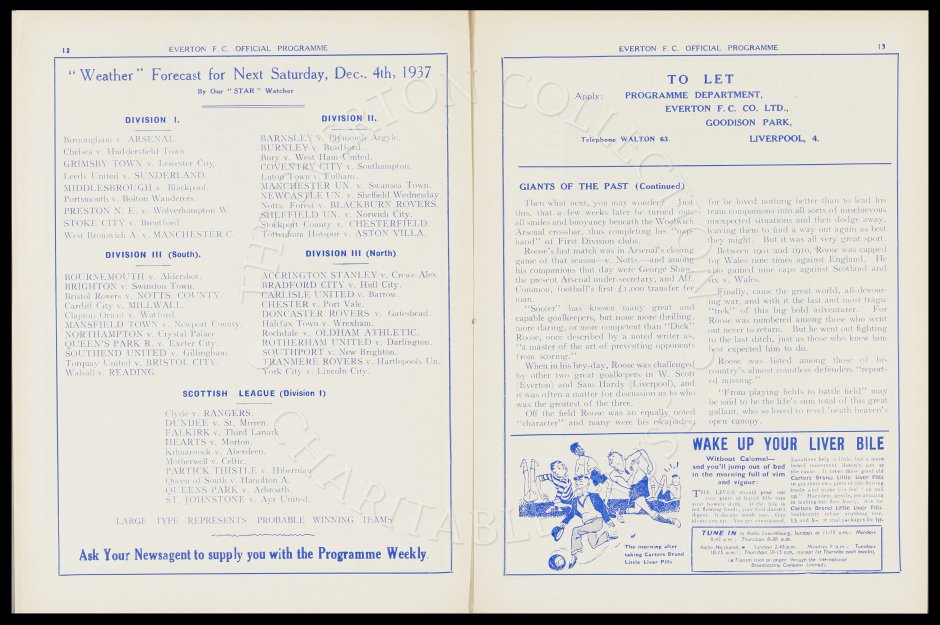 12
EVERTON F.C. OFFICIAL PROGRAMME
"Weather" Forecast for Next Saturday, Dec. 4th, 1937
By Our "STAR" Watcher
DIVISION I.
Birmingham v. ARSENAL.
Chelsea v. Huddersfield Town.
GRIMSBY TOWN v. Leicester City.
Leeds United v. SUNDERLAND.
MIDDLESBROUGH v. Blackpool.
Portsmouth v. Bolton Wanderers.
PRESTON N. E. v. Wolverhampton W.
STOKE CITY v. Brentford.
West Bromwich A. v. MANCHESTER C.
DIVISION II.
BARNSLEY v. Plymouth Argyle.
BURNLEY v. Bradford.
Bury v. West Ham United.
COVENTRY CITY v. Southampton.
Luton Town v. Fulham.
MANCHESTER UN. v. Swansea Town
NEWCASTLE UN. v. Sheffield Wednesday
Notts. Forest v. BLACKBURN ROVERS.
SHEFFIELD UN. v. Norwich City.
Stockport County v. CHESTERFIELD.
Tottenham Hotspur v. ASTON VILLA.
DIVISION III (South).
BOURNEMOUTH v. Aldershot.
BRIGHTON v. Swindon Town.
Bristol Rovers v. NOTTS. COUNTY.
Cardiff City v. MILLWALL.
Clapton Orient v. Watford.
MANSFIELD TOWN v. Newport County.
NORTHAMPTON v. Crystal Palace.
QUEEN'S PARK R. v. Exeter City.
SOUTHEND UNITED v. Gillingham.
Torquay United v. BRISTOL CITY.
Walsall v. READING.
DIVISION III (North)
ACCRINGTON STANLEY v. Crewe Alex
BRADFORD CITY v. Hull City.
CARLISLE UNITED v. Barrow.
CHESTER v. Port Vale.
DONCASTER ROVERS v. Gateshead.
Halifax Town v. Wrexham.
Rochdale v. OLDHAM ATHLETIC.
ROTHERHAM UNITED v. Darlington.
SOUTHPORT v. New Brighton.
TRANMERE ROVERS v. Hartlepools Un.
York City v. Lincoln City.
SCOTTISH LEAGUE (Division I)
Clyde v. RANGERS.
DUNDEE v. St. Mirren.
FALKIRK v. Third Lanark
HEARTS v. Morton.
Kilmarnock v. Aberdeen.
Motherwell v. Celtic.
PARTICK THISTLE v. Hibernian.
Queen of South v. Hamilton A.
QUEENS PARK v. Arbroath.
ST. JOHNSTONE v. Ayr United.
LARGE TYPE REPRESENTS PROBABLE WINNING TEAMS
Ask Your Newsagent to supply you with the Programme Weekly.
EVERTON F.C. OFFICIAL PROGRAMME
13
TO LET
Apply: PROGRAMME DEPARTMENT,
EVERTON F.C. CO. LTD.,
GOODISON PARK,
Telephone WALTON 63. LIVERPOOL, 4.
GIANTS OF THE PAST (Continued)
Then what next, you may wonder? Just
this, that a few weeks later he turned out,
all smiles and buoyancy beneath the Woolwich
Arsenal crossbar, thus completing his "nap
hand" of First Division clubs.
Roose's last match was in Arsenal's closing
game of that season—v. Notts.—and among
his companions that day were George Shaw,
the present Arsenal under-secretary, and Alf.
Common, football's first £1,000 transfer fee
man.
"Soccer" has known many great and
capable goalkeepers, but none more thrilling,
more daring, or more competent than "Dick"
Roose, once described by a noted writer as,
"a master of the art of preventing opponents
from scoring."
When in his hey-day, Roose was challenged
by other two great goalkeepers in W. Scott
(Everton) and Sam Hardy (Liverpool), and
it was often a matter for discussion as to who
was the greatest of the three.
Off the field Roose was an equally noted
"character" and many were his escapades,
for he loved nothing better than to lead his
team companions into all sorts of mischievous
unexpected situations and then dodge away,
leaving them to find a way out again as best
they might. But it was all very great sport.
Between 1901 and 1910, Roose was capped
for Wales nine times against England. He
also gained nine caps against Scotland and
six v. Wales.
Finally, came the great world, all-devour-
ing war, and with it the last and most tragic
"trek" of this big bold adventurer. For
Roose was numbered among those who went
out never to return. But he went out fighting
to the last ditch, just as those who knew him
best expected him to do.
Roose was listed among those of his
country's almost countless defenders "report-
ed missing."
"From playing fields to battle field" may
be said to be the life's sum total of this great
gallant, who so loved to revel 'neath heaven's
open canopy.
The morning after
taking Carters Brand
Little Liver Pills
WAKE UP YOUR LIVER BILE
Without Calomel—
and you'll jump out of bed
in the morning full of vim
and vigour:
THE LIVER should pour out
two pints of liquid bile into
your bowels daily. If this bile is
not flowing freely, your food doesn't
digest. It decays inside you. Gas
bloats you up. You get constipated.
Laxatives help a little, but a mere
bowel movement doesn't get at
the cause. It takes those good old
Carters Brand Little Liver Pills
to get these two pints of bile flowing
freely and make you feel "up and
up." Harmless, gentle, yet amazing
in making bile flow freely. Ask for
Carters Brand Little Liver Pills.
Stubbornly refuse anything else.
TUNE IN to Radio Luxembourg, Sundays at 11.15 a.m.; Mondays
8.45 a.m.; Thursdays 8.30 a.m.
Radio Normandy: Sundays 2.45 p.m.; Mondays 9 a.m.; Tuesdays
10.15 a.m.; Thursdays 10.15 a.m. (except 1st Thursday each month).
Transmission arranged through the International
Broadcasting Company Limited).
THE EVERTON COLLECTION
CHARITABLE TRUST